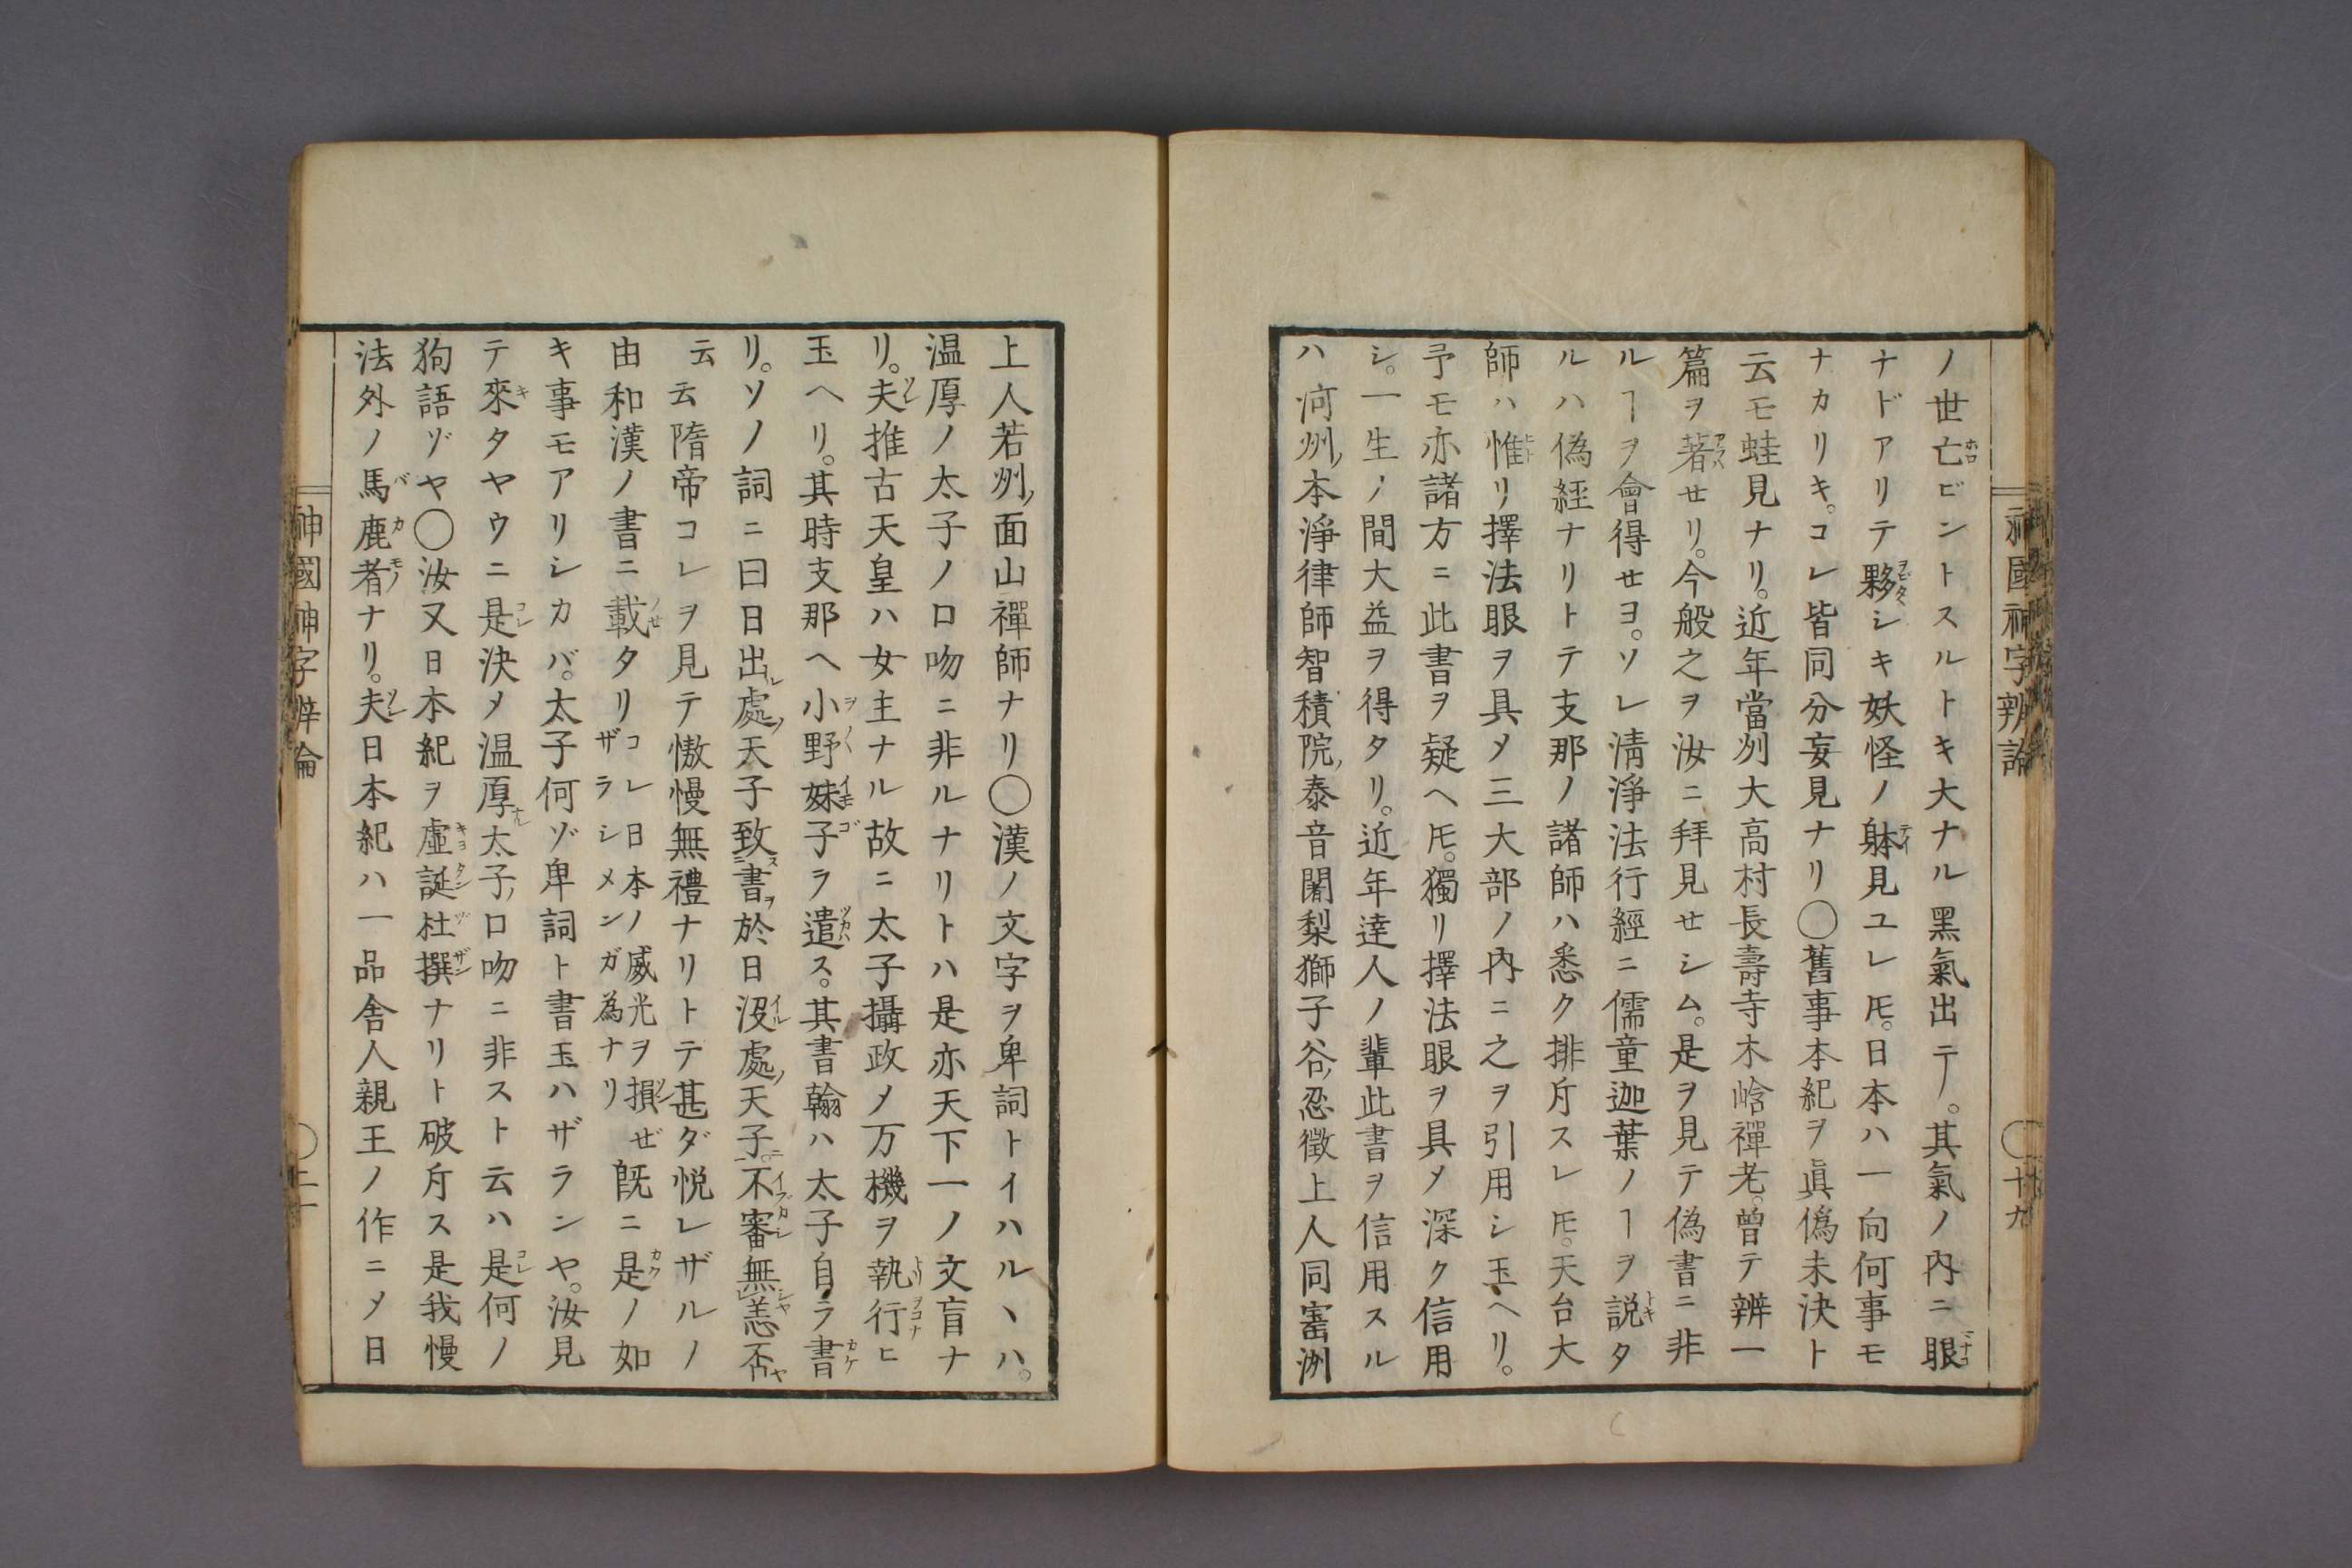 神國神字辨論
〇十九
ノ世亡ビントスルトキ大ナル黑氣出テ丿。其氣ノ内ニ眼
ナドアリテ夥シキ妖怪ノ躰見ユレ𪜈。日本ハ一向何事モ
ナカリキ。コレ皆同分妄見ナリ〇舊事本紀ヲ眞僞未決ト
云モ蛙見ナリ。近年當刕大高村長壽寺木㟏禪老。曽テ辨一
篇ヲ著セリ。今般之ヲ汝ニ拜見セシム。是ヲ見テ偽書ニ非
ルヿヲ會得セヨ。ソレ淸淨法行經ニ儒童迦葉ノヿヲ説タ
ルハ偽經ナリトテ支那ノ諸師ハ悉ク排斥スレ𪜈。天台大
師ハ惟リ擇法眼ヲ具メ三大部ノ内ニ之ヲ引用シ玉ヘリ。
予モ亦諸方ニ此書ヲ疑ヘ𪜈。獨リ擇法眼ヲ具メ深ク信用
シ。一生ノ間大益ヲ得タリ。近年達人ノ輩此書ヲ信用スル
ハ河州ノ本淨律師智積院ノ泰音闍梨獅子谷ノ忍徴上人同密洲
上人若州ノ面山禪師ナリ〇漢ノ文字ヲ卑詞トイハルヽハ。
温厚ノ太子ノ口吻ニ非ルナリトハ是亦天下一ノ文盲ナ
リ。夫推古天皇ハ女主ナル故ニ太子攝政メ万機ヲ執行ヒ
玉ヘリ。其時支那ヘ小野妹子ヲ遣ス。其書翰ハ太子自ラ書
リ。ソノ詞ニ曰日出處ノ天子致書於日沒處ノ天子。不審無恙否
云云隋帝コレヲ見テ慠慢無禮ナリトテ甚ダ悦レザルノ
由和漢ノ書ニ載タリコレ日本ノ威光ヲ損ゼザラシメンガ為ナリ既ニ是ノ如
キ事モアリシカバ。太子何ゾ卑詞ト書玉ハザランヤ。汝見
テ來タヤウニ是決メ温厚太子ノ口吻ニ非スト云ハ是何ノ
狗語ゾヤ〇汝又日本紀ヲ虛誕杜撰ナリト破斥ス是我慢
法外ノ馬鹿者ナリ。夫日本紀ハ一品舎人親王ノ作ニメ日
神國神字辨論